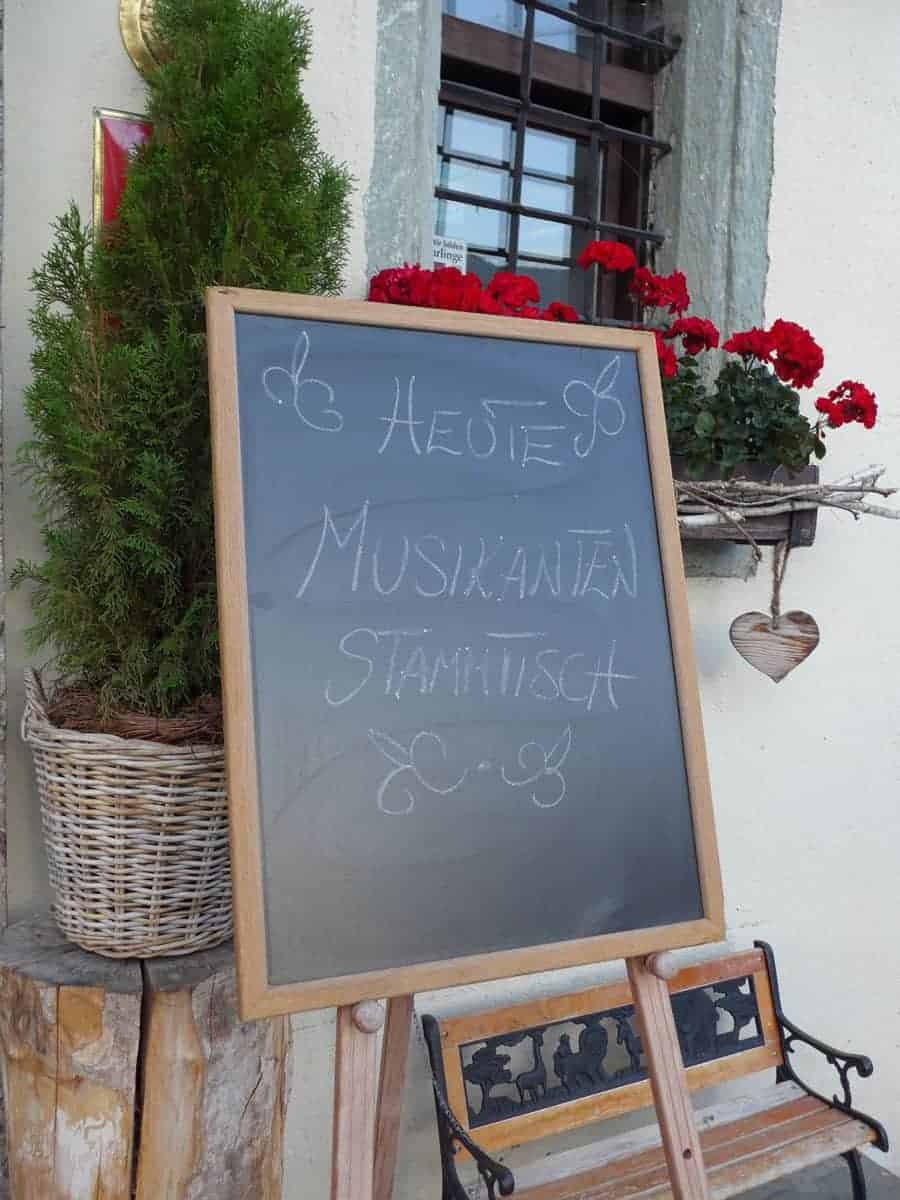 HEUTE
MUSIKANTEN
STAMMTISCH